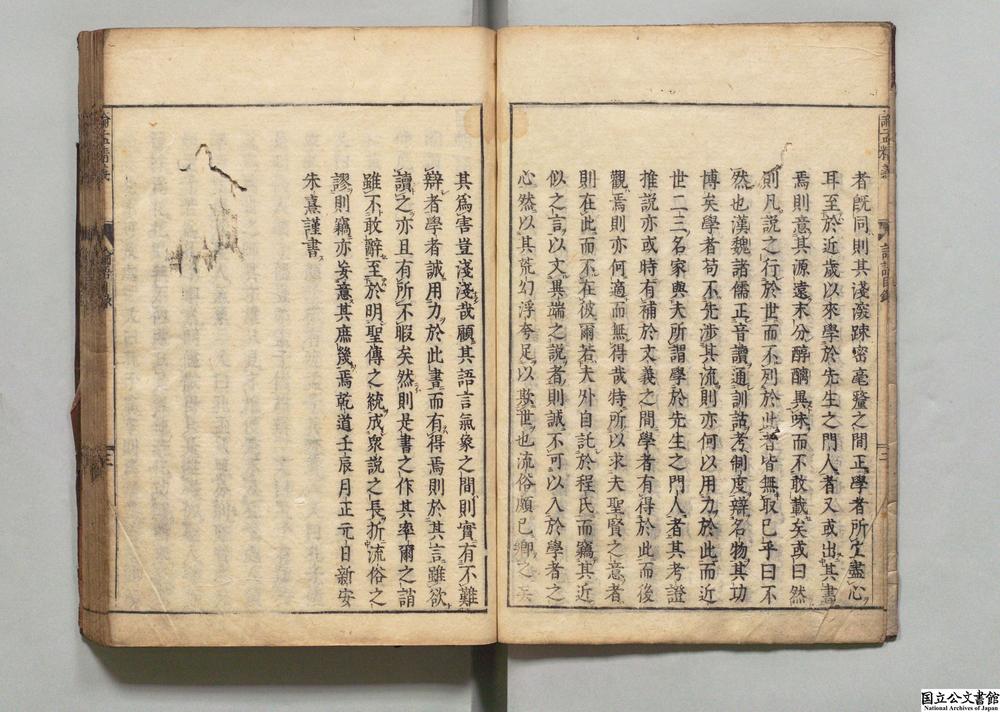 者既同則其淺深踈密毫釐之間正學者所宜盡心
耳至於近歲以來學於先生之門人者又或出其書
焉則意其源遠末分醇醨異味而不敢載矣或曰然
則凡説之行於世而不列於此者皆無取已乎曰不
然也漢魏諸儒正音讀通訓詁考制度辯名物其功
博矣學者苟不先涉其流則亦何以用力於此而近
世二三名家與夫所謂學於先生之門人者其考證
推説亦或時有補於文義之間學者有得於此而後
觀焉則亦何適而無得哉特所以求夫聖賢之意者
則在此而不在彼爾若夫外自託於程氏而竊其近
似之言以文異端之説者則誠不可以入於學者之
心然以其荒幻浮夸足以欺世也流俗頗已鄉之矣
其爲害豈淺淺哉顧其語言氣象之間則實有不難
辯者學者誠用力於此書而有得焉則於其言雖欲
讀之亦且有所不暇矣然則是書之作其率爾之誚
雖不敢辭至於明聖傳之統成衆説之長折流俗之
謬則竊亦妄意其庶幾焉乾道壬辰月正元日新安
朱熹謹書
論孟精義
國立公文書館
National Archives of Japan